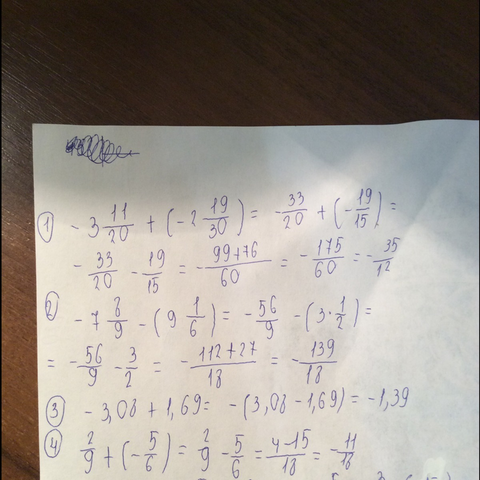 ① - 3 11/20 + (- 2 19/30) = - 33/20 + (- 19/15) =
- 33/20 - 19/15 = - 99+76/60 = - 175/60 = - 35/12
② - 7 8/9 - (9 1/6) = - 56/9 - (3 · 1/2) =
= - 56/9 - 3/2 = - 112+27/18 = - 139/18
③ - 3,08 + 1,69 = - (3,08 - 1,69) = - 1,39
④ 2/9 + (- 5/6) = 2/9 - 5/6 = 4-15/18 = - 11/18